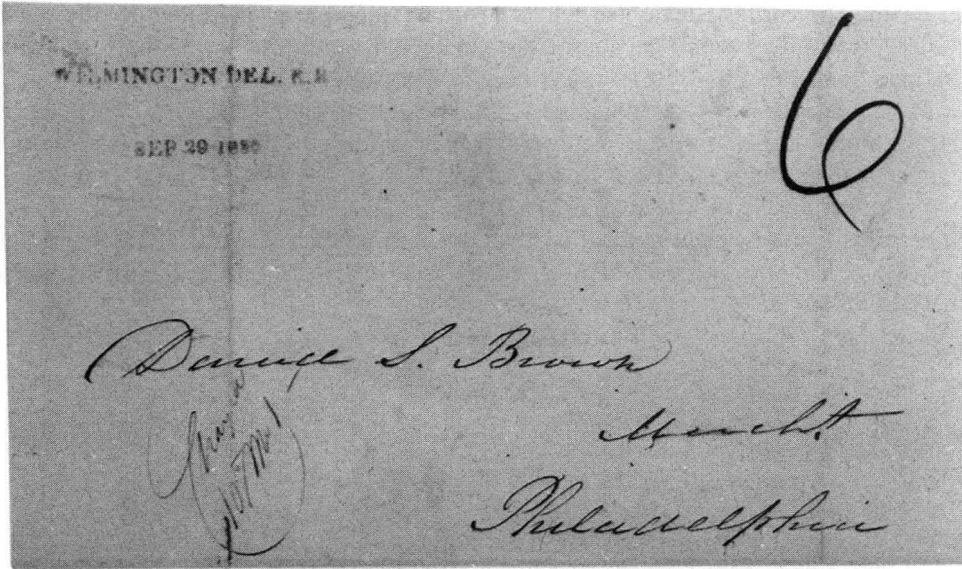 WILMINGTON DEL. R.R
6
SEP 29
Daniel S. Brown
Mercht
Philadelphia